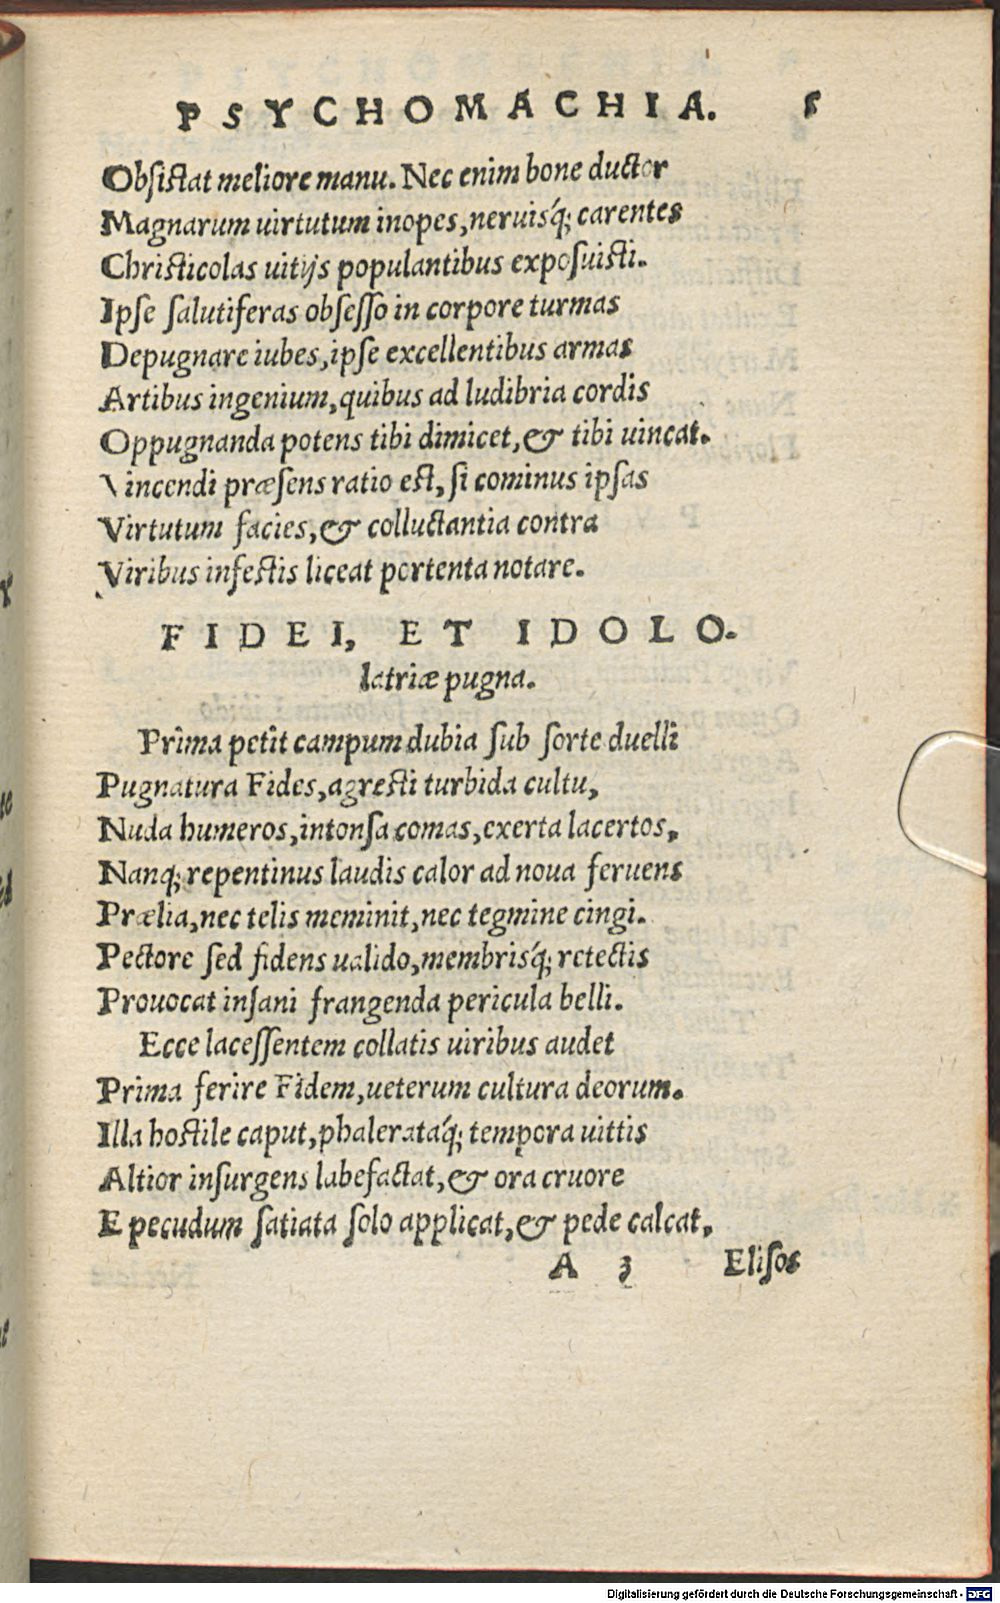 PSYCHOMACHIA. 5
Obſiſtat meliore manu. Nec enim bone ductor
Magnarum uirtutum inopes, neruisq́; carentes
Chriſticolas uitijs populantibus expoſuiſti.
Ipſe ſalutiferas obſeſſo in corpore turmas
Depugnare iubes, ipſe excellentibus armas
Artibus ingenium, quibus ad ludibria cordis
Oppugnanda potens tibi dimicet, & tibi uincat.
Vincendi præſens ratio eſt, ſi cominus ipſas
Virtutum facies, & colluctantia contra
Viribus infeſtis liceat portenta notare.
FIDEI, ET IDOLO-
latriæ pugna.
Prima petit campum dubia ſub ſorte duelli
Pugnatura Fides, agreſti turbida cultu,
Nuda humeros, intonſa comas, exerta lacertos,
Nanq; repentinus laudis calor ad noua feruens
Prælia, nec telis meminit, nec tegmine cingi.
Pectore ſed fidens ualido, membrisq́; retectis
Prouocat inſani frangenda pericula belli.
Ecce laceſſentem collatis uiribus audet
Prima ferire Fidem, ueterum cultura deorum.
Illa hoſtile caput, phalerataq́; tempora uittis
Altior inſurgens labefactat, & ora cruore
E pecudum ſatiata ſolo applicat, & pede calcat,
A 3 Eliſos
Digitalisierung gefördert durch die Deutsche Forschungsgemeinschaft - DFG